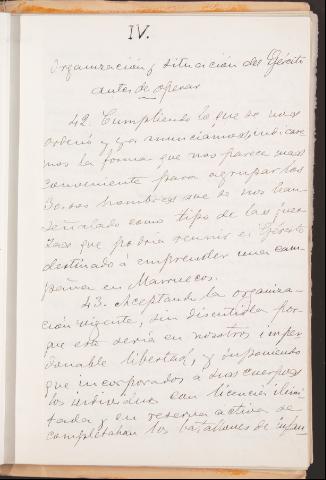 IV.
Organización y situación del Ejército
antes de operar
42. Cumpliendo lo que se nos
ordenó y ya anunciamos, indicare
mos la forma que nos parece mas
conveniente para agrupar los
hombres que se nos han
señalado como tipo de las fuer
zas que podria reunir el Ejército
destinado á emprender una cam
paña en Marruecos.
43. Aceptando la organiza-
ción vigente, sin discutirla por-
que esto seria en nosotros imper
donable libertad, y suponiendo
que incorporados a sus cuerpos
los individuos con licencia ilimi
tada y en reserva activa se
completaban los batallones de infan